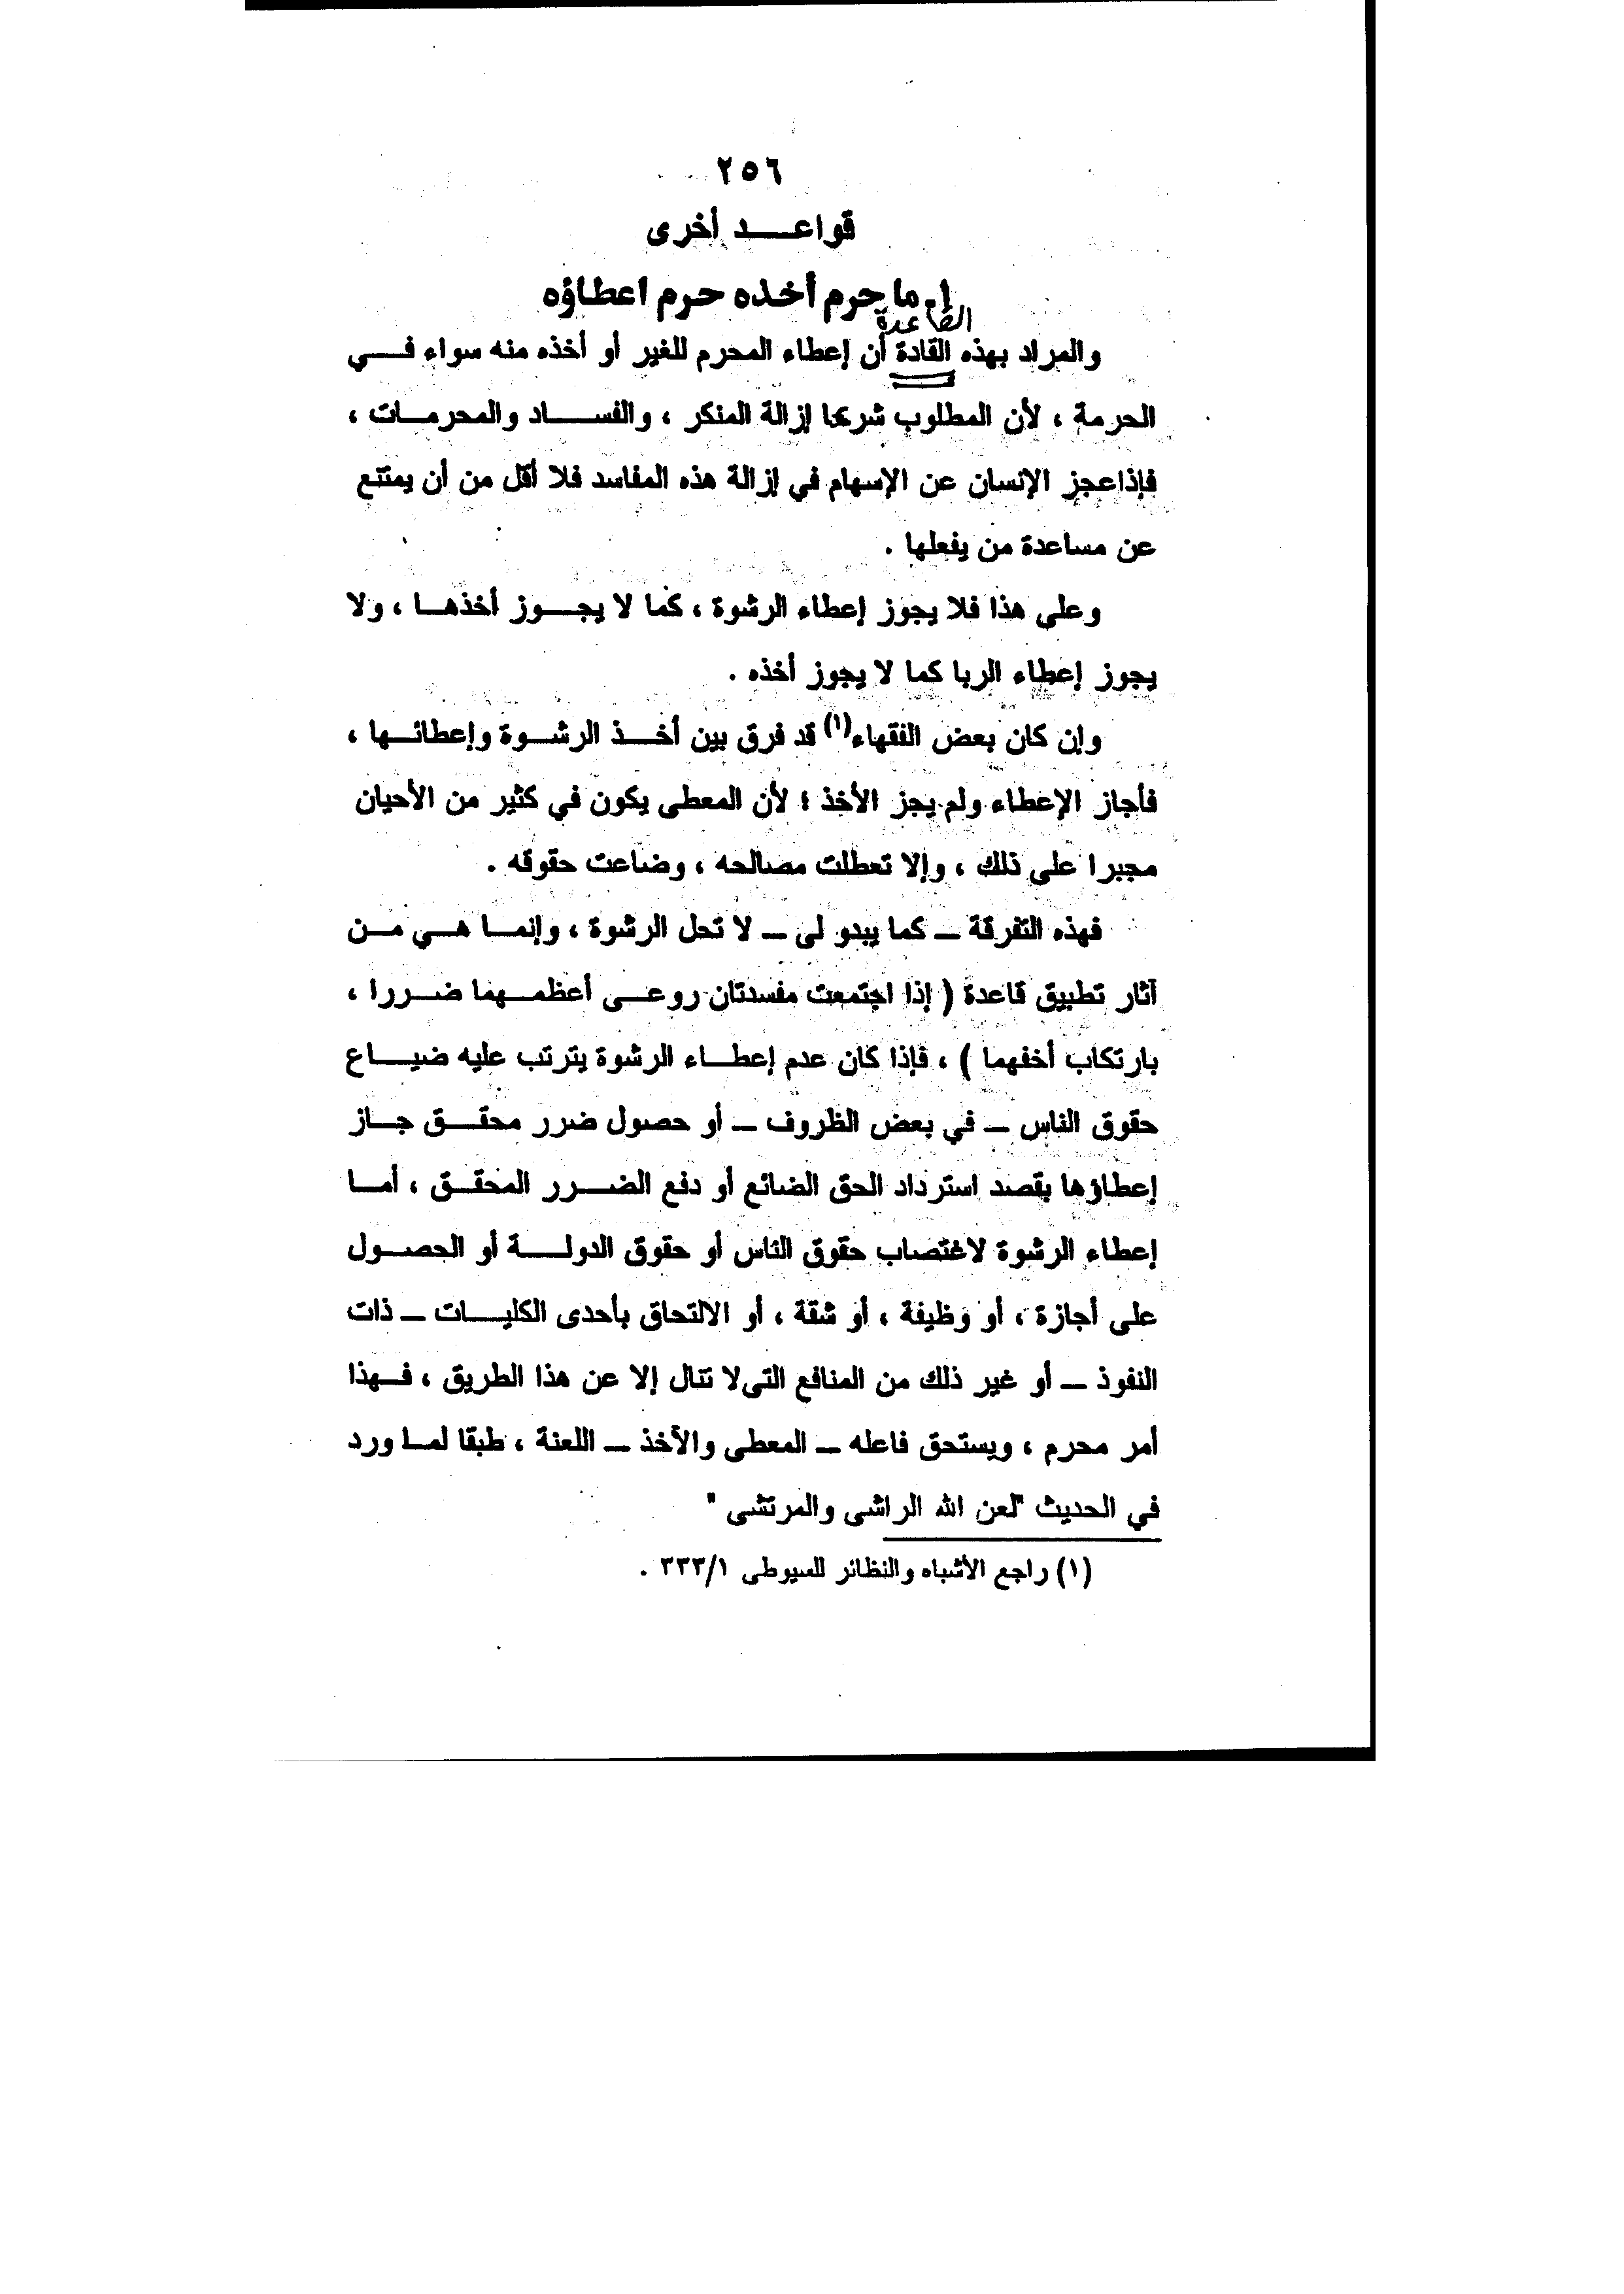 ٢٥٦
قواعد أخرى
١ـ ما حرم أخذه حرم اعطاؤه
القاعدة
والمراد بهذه القادة أن إعطاء المحرم للغير أو أخذه منه سواء في
الحرمة ، لأن المطلوب شرعا إزالة المنكر ، والفساد والمحرمات ،
فإذاعجز الإنسان عن الإسهام في إزالة هذه المفاسد فلا أقل من أن يمتنع
عن مساعدة من يفعلها .
وعلى هذا فلا يجوز إعطاء الرشوة ، كما لا يجوز أخذها ، ولا
يجوز إعطاء الربا كما لا يجوز أخذه .
وإن كان بعض الفقهاء(١) قد فرق بين أخذ الرشوة وإعطائها ،
فأجاز الإعطاء ولم يجز الأخذ ؛ لأن المعطى يكون في كثير من الأحيان
مجبرا على ذلك ، وإلا تعطلت مصالحه ، وضاعت حقوقه .
فهذه التفرقة ـ كما يبدو لى ـ لا تحل الرشوة ، وإنما هي من
آثار تطبيق قاعدة ( إذا اجتمعت مفسدتان روعى أعظمهما ضررا ،
بارتكاب أخفهما ) ، فإذا كان عدم إعطاء الرشوة يترتب عليه ضياع
حقوق الناس ـ في بعض الظروف ـ أو حصول ضرر محقق جاز
إعطاؤها بقصد استرداد الحق الضائع أو دفع الضرر المحقق ، أما
إعطاء الرشوة لاغتصاب حقوق الناس أو حقوق الدولة أو الحصول
على أجازة ، أو وظيفة ، أو شقة ، أو الالتحاق بأحدى الكليات ـ ذات
النفوذ ـ أو غير ذلك من المنافع التى لا تنال إلا عن هذا الطريق ، فهذا
أمر محرم ، ويستحق فاعله ـ المعطى والآخذ ـ اللعنة ، طبقا لما ورد
في الحديث "لعن الله الراشى والمرتشى "
(١) راجع الأشباه والنظائر للسيوطى ٣٣٣/١ .